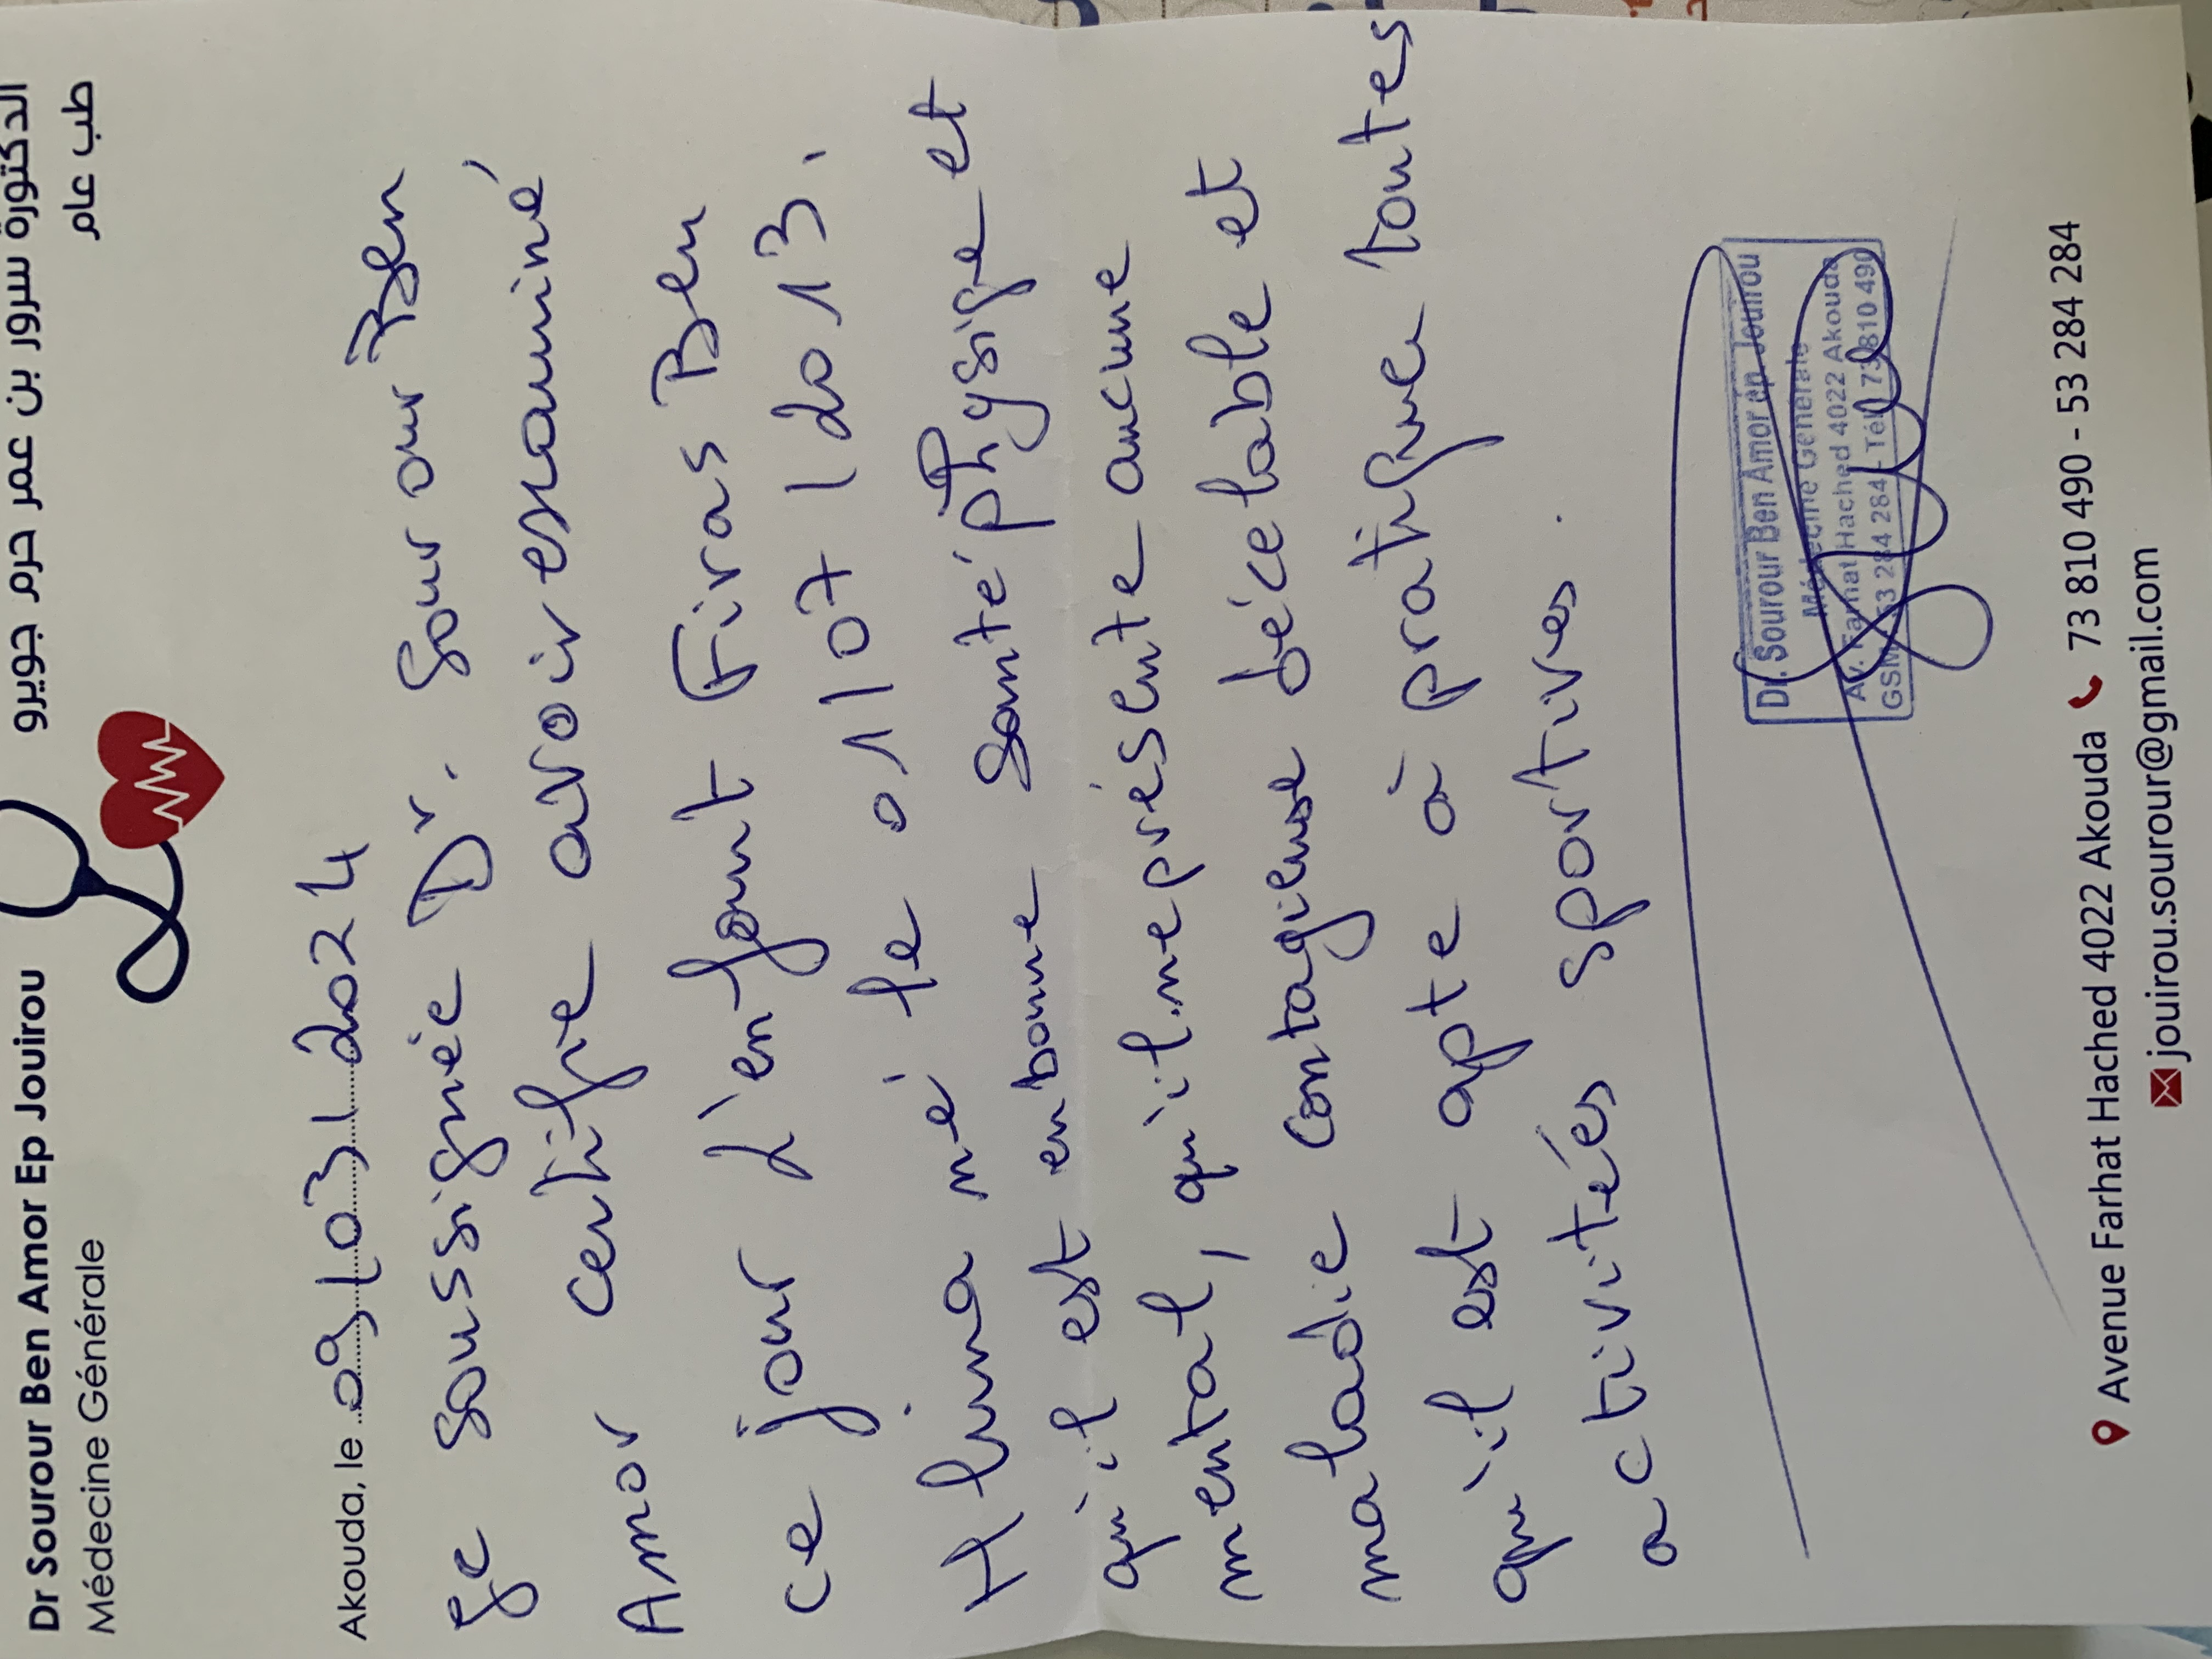 Dr Sourour Ben Amor Ep Jouirou
Médecine Générale
الدكتورة سرور بن عمر حرم جويرو
طب عام
Akouda, le 09/03/2024
Je soussignée Dr. Sourour Ben
Amor certifie avoir examiné
ce jour l'enfant Firas Ben
Hlima né le 01/07/2013.
qu'il est en bonne santé physique et
mental, qu'il ne présente aucune
maladie contagieuse décelable et
qu'il est apte à pratiquer toutes
activités sportives.
Dr. Sourour Ben Amor ép Jouirou
Médecine Générale
Av. Farhat Hached 4022 Akouda
GSM: 53 284 284 - Tél: 73 810 490
Avenue Farhat Hached 4022 Akouda 73 810 490 - 53 284 284
jouirou.sourour@gmail.com